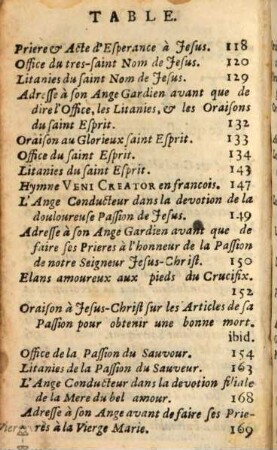 TABLE.
Priere & Acte d'Esperance à Jesus. 118
Office du tres-saint Nom de Jesus. 120
Litanies du saint Nom de Jesus. 129
Adresse à son Ange Gardien avant que de
dire l'Office, les Litanies, & les Oraisons
du saint Esprit. 132
Oraison au Glorieux saint Esprit. 133
Office du saint Esprit. 134
Litanies du saint Esprit. 143
Hymne VENI CREATOR en francois. 147
L'Ange Conducteur dans la devotion de la
douloureuse Passion de Jesus. 149
Adresse à son Ange Gardien avant que de
faire ses Prieres à l'honneur de la Passion
de notre Seigneur Jesus-Christ. 150
Elans amoureux aux pieds du Crucifix.
152
Oraison à Jesus-Christ sur les Articles de sa
Passion pour obtenir une bonne mort.
ibid.
Office de la Passion du Sauvour. 154
Litanies de la Passion du Sauveur. 163
L'Ange Conducteur dans la devotion filiale
de la Mere du bel amour. 168
Adresse à son Ange avant de faire ses Prie-
rès à la Vierge Marie. 169